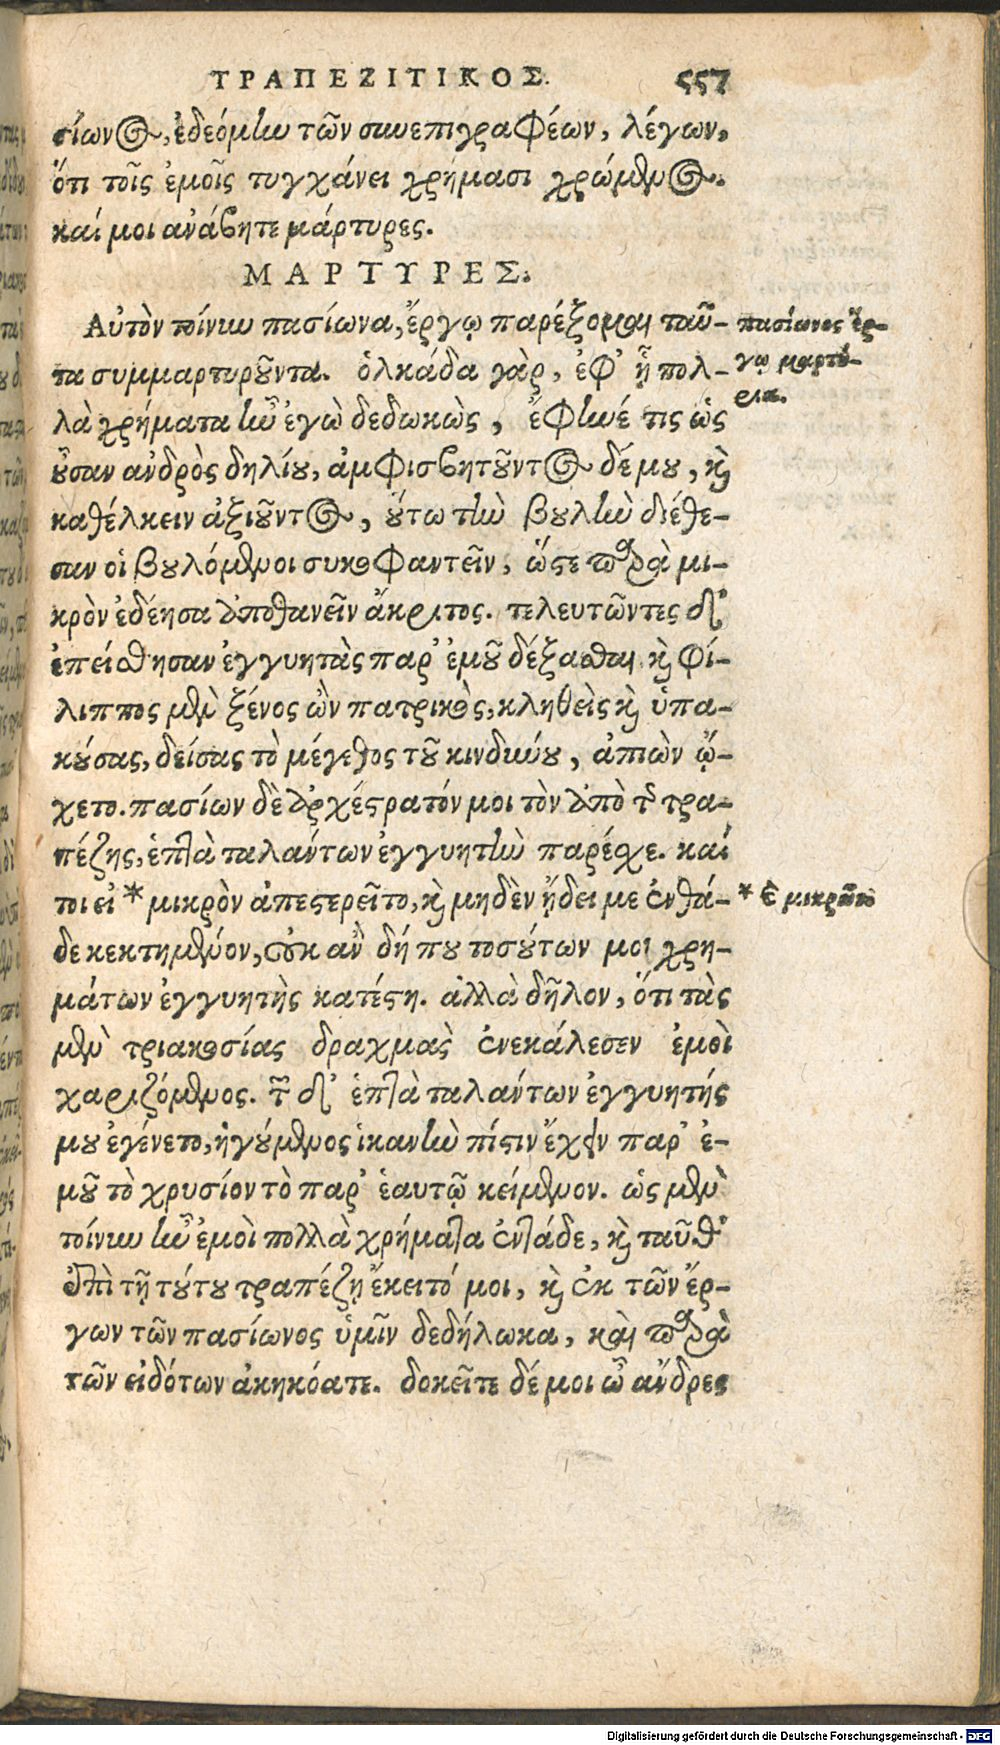 ΤΡΑΠΕΖΙΤΙΚΟΣ. 557
σίωνος, ἐδεόμην τῶν συνεπιγραφέων, λέγων,
ὅτι τοῖς ἐμοῖς τυγχάνει χρήμασι χρώμενος.
καί μοι ἀνάβητε μάρτυρες.
ΜΑΡΤΥΡΕΣ.
Αὐτὸν τοίνυν πασίωνα, ἔργῳ παρέξομαι ταῦ-
τα συμμαρτυροῦντα. ὁλκάδα γὰρ, ἐφ’ ᾗ πολ-
λὰ χρήματα ἦν ἐγὼ δεδωκὼς, ἔφηνέ τις ὡς
οὖσαν ἀνδρὸς δηλίου, ἀμφισβητοῦντος δέ μου, καὶ
καθέλκειν ἀξιοῦντος, οὕτω τὴν βουλὴν διέθε-
σαν οἱ βουλόμενοι συκοφαντεῖν, ὥστε παρὰ μι-
κρὸν ἐδέησα ἀποθανεῖν ἄκριτος. τελευτῶντες δ’
ἐπείσθησαν ἐγγυητὰς παρ’ ἐμοῦ δέξασθαι καὶ φί-
λιππος μὲν ξένος ὢν πατρικὸς, κληθεὶς καὶ ὑπα-
κούσας, δείσας τὸ μέγεθος τοῦ κινδύνου, ἀπιὼν ᾤ-
χετο. πασίων δὲ ἀρχέστρατόν μοι τὸν ἀπὸ τῆς τρα-
πέζης, ἑπτὰ ταλάντων ἐγγυητὴν παρέσχε. καί
τοι εἰ * μικρὸν ἀπεστερεῖτο, καὶ μηδὲν ᾔδει με ἐνθά-
δε κεκτημένον, οὐκ ἂν δή που τοσούτων μοι χρη-
μάτων ἐγγυητὴς κατέστη. ἀλλὰ δῆλον, ὅτι τὰς
μὲν τριακοσίας δραχμὰς ἐνεκάλεσεν ἐμοὶ
χαριζόμενος. τῶν δ’ ἑπτὰ ταλάντων ἐγγυητής
μου ἐγένετο, ἡγούμενος ἱκανὴν πίστιν ἔχειν παρ’ ἐ-
μοῦ τὸ χρυσίον τὸ παρ’ ἑαυτῷ κείμενον. ὡς μὲν
τοίνυν ἦν ἐμοὶ πολλὰ χρήματα ἐνθάδε, καὶ ταῦθ’
ἐπὶ τῇ τούτου τραπέζῃ ἔκειτό μοι, καὶ ἐκ τῶν ἔρ-
γων τῶν πασίωνος ὑμῖν δεδήλωκα, καὶ παρὰ
τῶν εἰδότων ἀκηκόατε. δοκεῖτε δέ μοι ὦ ἄνδρες
πασίωνος ἔρ-
γῳ μαρτύ-
ρια.
Digitalisierung gefördert durch die Deutsche Forschungsgemeinschaft - DFG